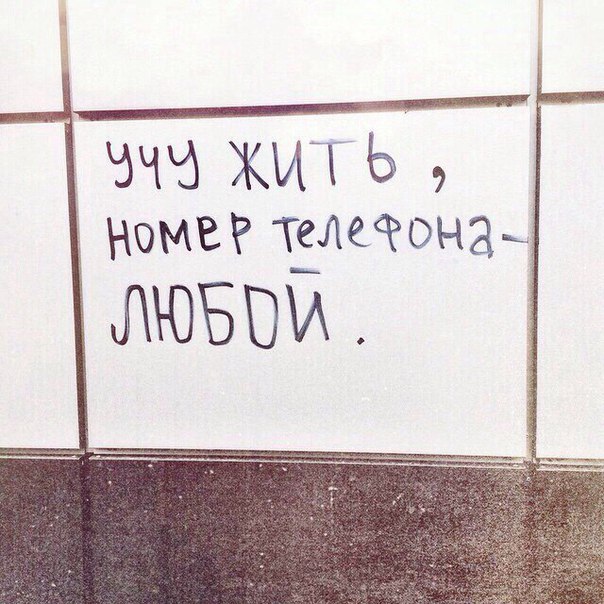 учу жить,
номер телефона-
ЛЮБОЙ.